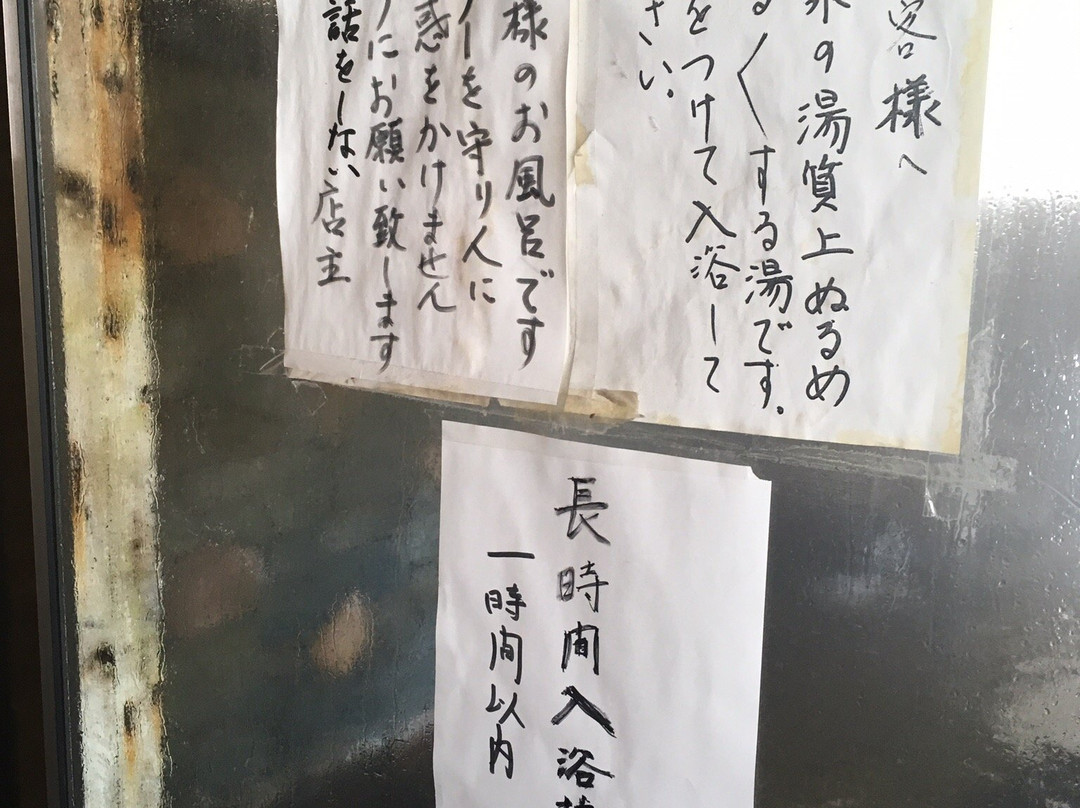 客様へ
の湯質上ぬるめ
るくする湯です。
をつけて入浴して
さい。
様のお風呂です
ーを守り人に
惑をかけません
にお願い致します
話をしない店主
長時間入浴
一時間以内